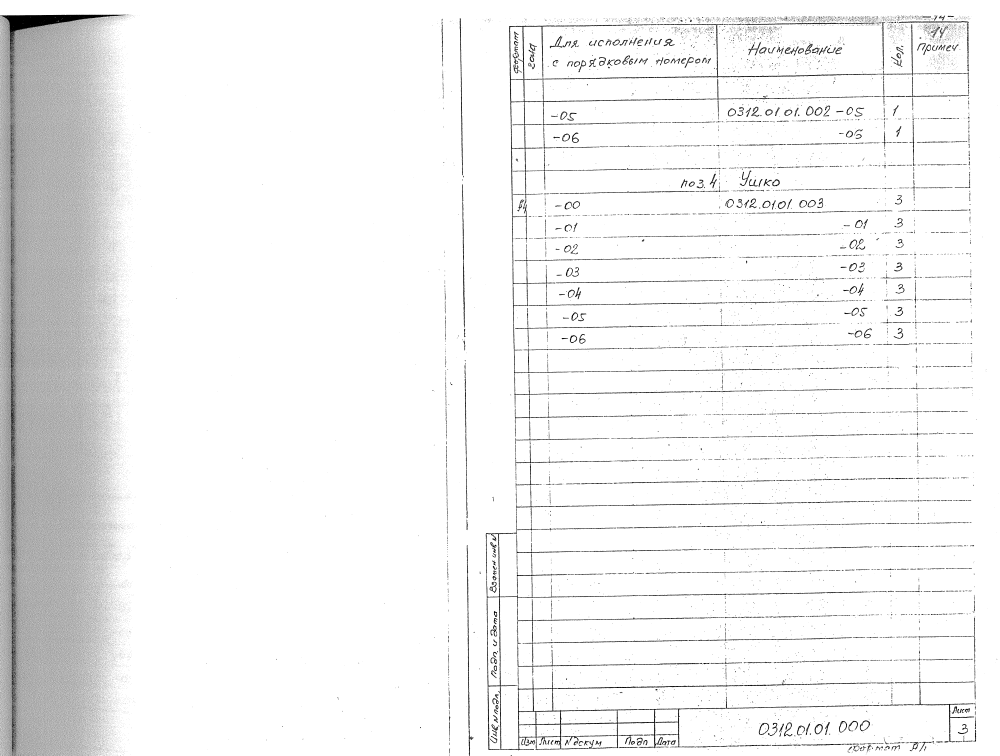 - 14 -
14
формат
зона
Для исполнения с порядковым номером
Наименование
Кол.
Примеч
-05 0312.01 01.002 -05 1
-06 -05 1
поз. 4 Ушко
А4 -00 0312.01.01.003 3
-01 -01 3
-02 -02 3
-03 -03 3
-04 -04 3
-05 -05 3
-06 -06 3
Взамен инв N
Подп. и дата
Инв. N подл.
Изм Лист N докум Подп Дата
0312.01.01.000
Лист
3
Формат А4